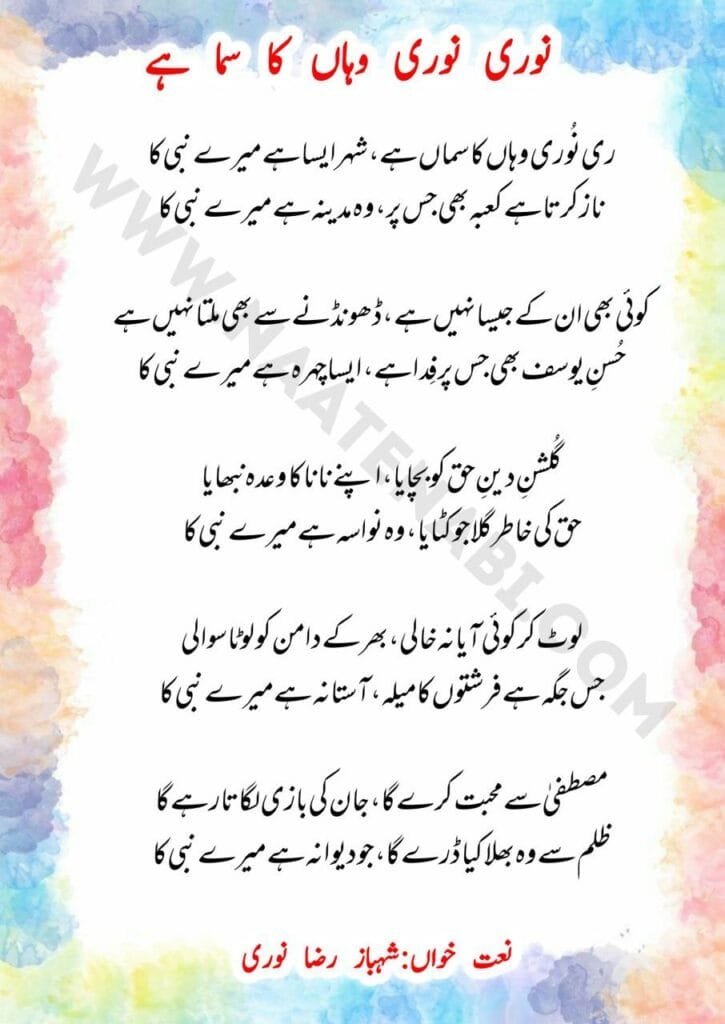 نوری نوری وہاں کا سما ہے
ری نُوری وہاں کا سماں ہے، شہر ایسا ہے میرے نبی کا
ناز کرتا ہے کعبہ بھی جس پر، وہ مدینہ ہے میرے نبی کا
کوئی بھی ان کے جیسا نہیں ہے، ڈھونڈنے سے بھی ملتا نہیں ہے
حُسنِ یوسف بھی جس پر فِدا ہے، ایسا چہرہ ہے میرے نبی کا
گُلشنِ دینِ حق کو بچایا، اپنے نانا کا وعدہ نبھایا
حق کی خاطر گلا جو کٹایا، وہ نواسہ ہے میرے نبی کا
لوٹ کر کوئی آیا نہ خالی، بھر کے دامن کو لوٹا سوالی
جس جگہ ہے فرشتوں کا میلہ، آستانہ ہے میرے نبی کا
مصطفیٰ سے محبت کرے گا، جان کی بازی لگاتا رہے گا
ظلم سے وہ بھلا کیا ڈرے گا، جو دیوانہ ہے میرے نبی کا
نعت خواں: شہباز رضا نوری
WWW.NAATENABI.COM